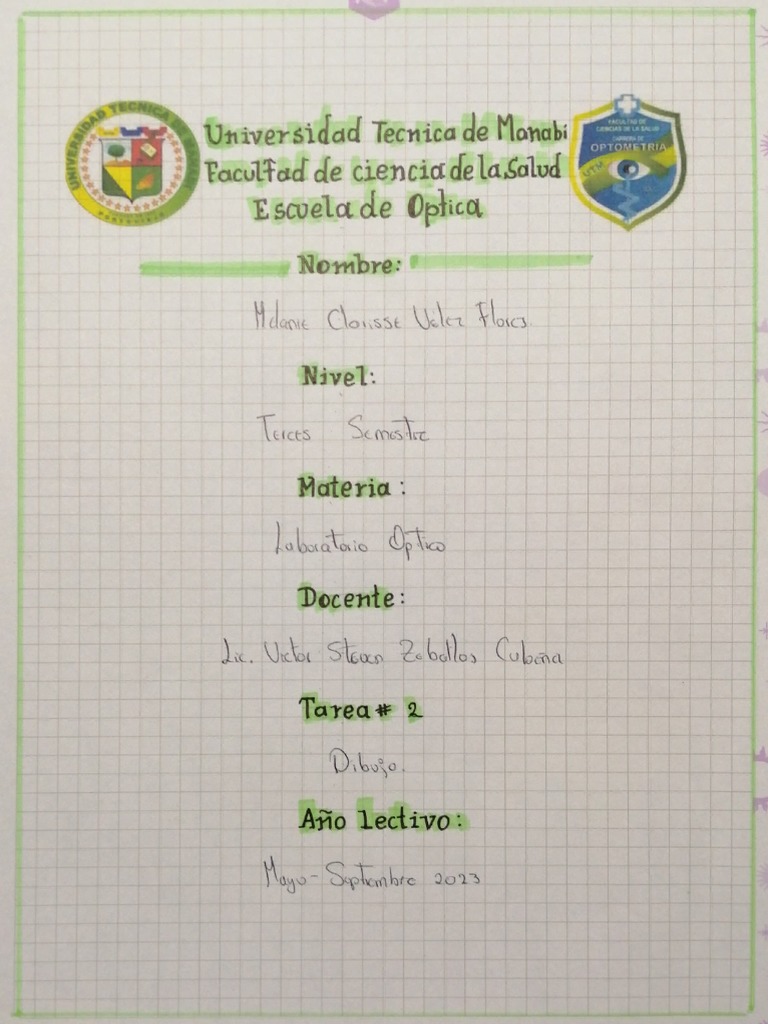 Universidad Tecnica de Manabi
Facultad de ciencia de la Salud
Escuela de Optica
UNIVERSIDAD TECNICA DE
FACULTAD DE
CIENCIAS DE LA SALUD
CARRERA DE
OPTOMETRÍA
UTM
Nombre:
Melanie Clarisse Velez Flores
Nivel:
Tercer Semestre
Materia:
Laboratorio Optico
Docente:
Lic. Victor Steven Zeballos
Tarea # 2
Dibujo.
Año lectivo:
Mayo-Septiembre 2023